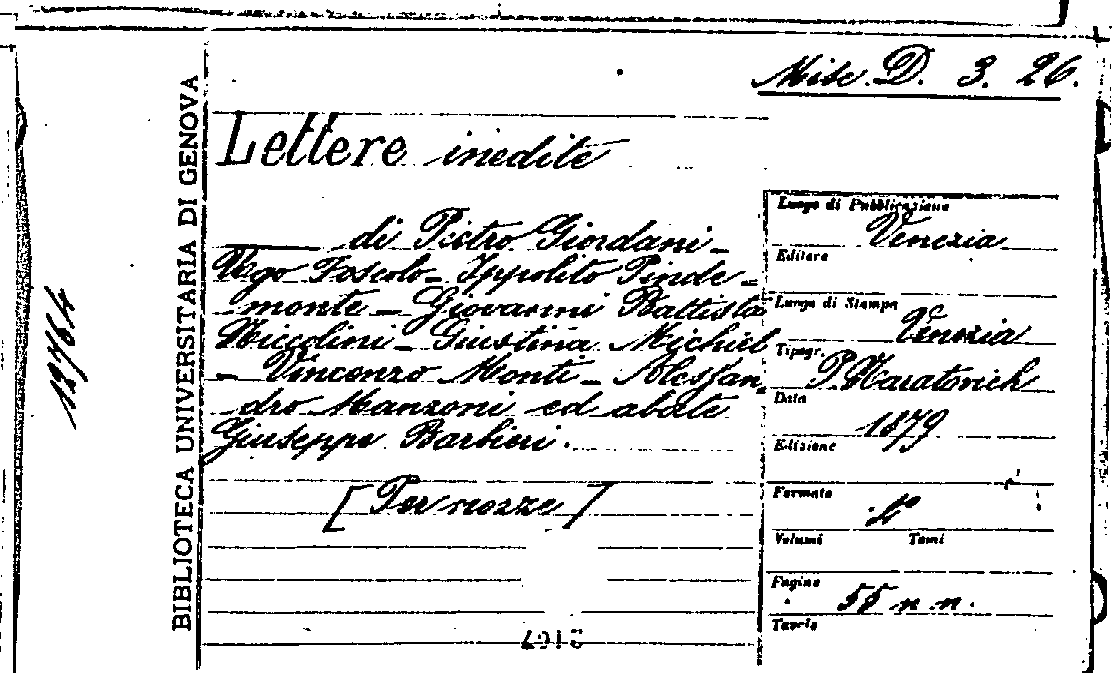 Misc. D. 3. 26.
Lettere inedite
di Pietro Giordani -
Ugo Foscolo - Ippolito Pinde-
monte - Giovanni Battista
Niccolini - Giustina Michiel
- Vincenzo Monti - Alessan-
dro Manzoni ed abate
Giuseppe Barbieri.
[Per nozze]
Luogo di Pubblicazione
Venezia
Editore
Luogo di Stampa
Venezia
Tipogr.
P. Naratovich
Data
1879
Edizione
Formato
Volumi Tomi
Pagine
55 n. n.
Tavole
BIBLIOTECA UNIVERSITARIA DI GENOVA